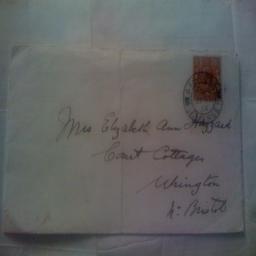 Mrs. Elizabeth Ann Hazzard
Court Cottages
Wrington
Nr. Bristol